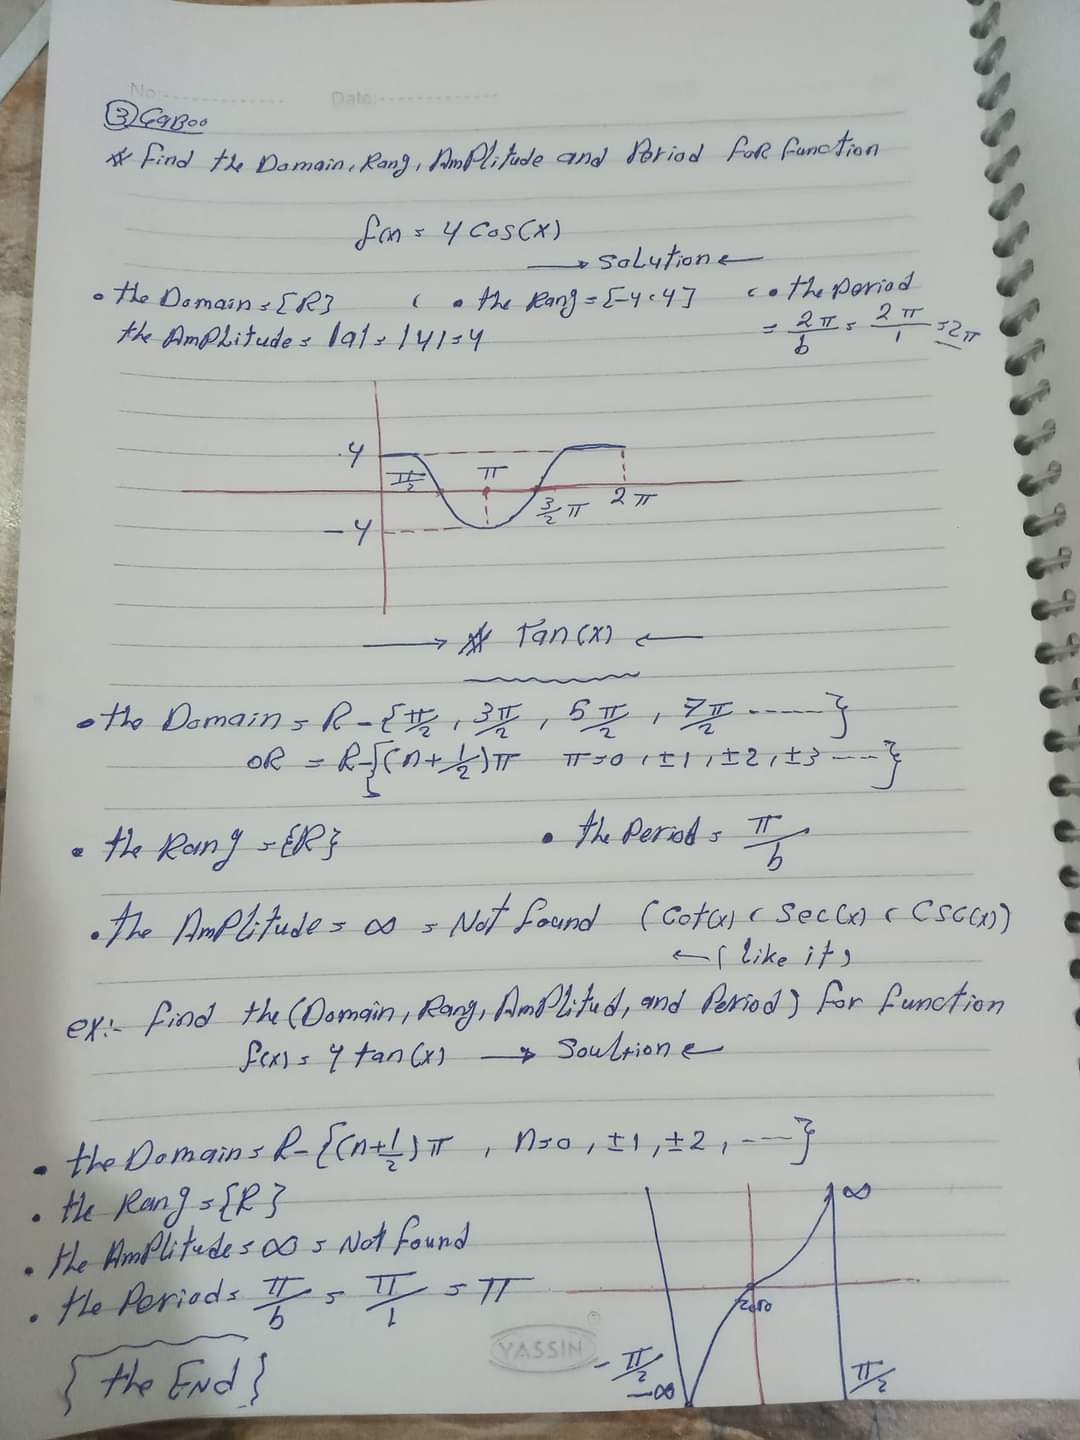 No:-------------- Date:--------------
③ GaBoo
* find the Domain, Rang, AmPlitude and Period foR function
f(x) = 4 Cos(x)
→ Solution ←
• the Domain = {R} ( • the Rang = [-4,4] ( • the period
the AmPLitude = |a| = |4| = 4 = 2π/b = 2π/1 = 2π
4
π/2 π
3/2 π 2π
-4
→ * Tan(x) ←
• the Domain = R-{π/2, 3π/2, 5π/2, 7π/2 -----}
oR = R-{(n+1/2)π π=0, ±1, ±2, ±3 ---}
• the Rang = {R} • the Period = π/b
• the AmPlitude = ∞ = Not found (Cot(x) ( Sec(x) ( CSC(x))
←( like it)
ex:- find the (Domain, Rang, AmPlitud, and Period) for function
f(x) = 4 tan(x) → Soultion ←
• the Domain = R-{(n+1/2)π, n=0, ±1, ±2, ---}
• the Rang = {R}
• the AmPlitude = ∞ = Not found
• the Period = π/b = π/1 = π
∞
zero
-π/2
-∞
π/2
YASSIN
{ the END }